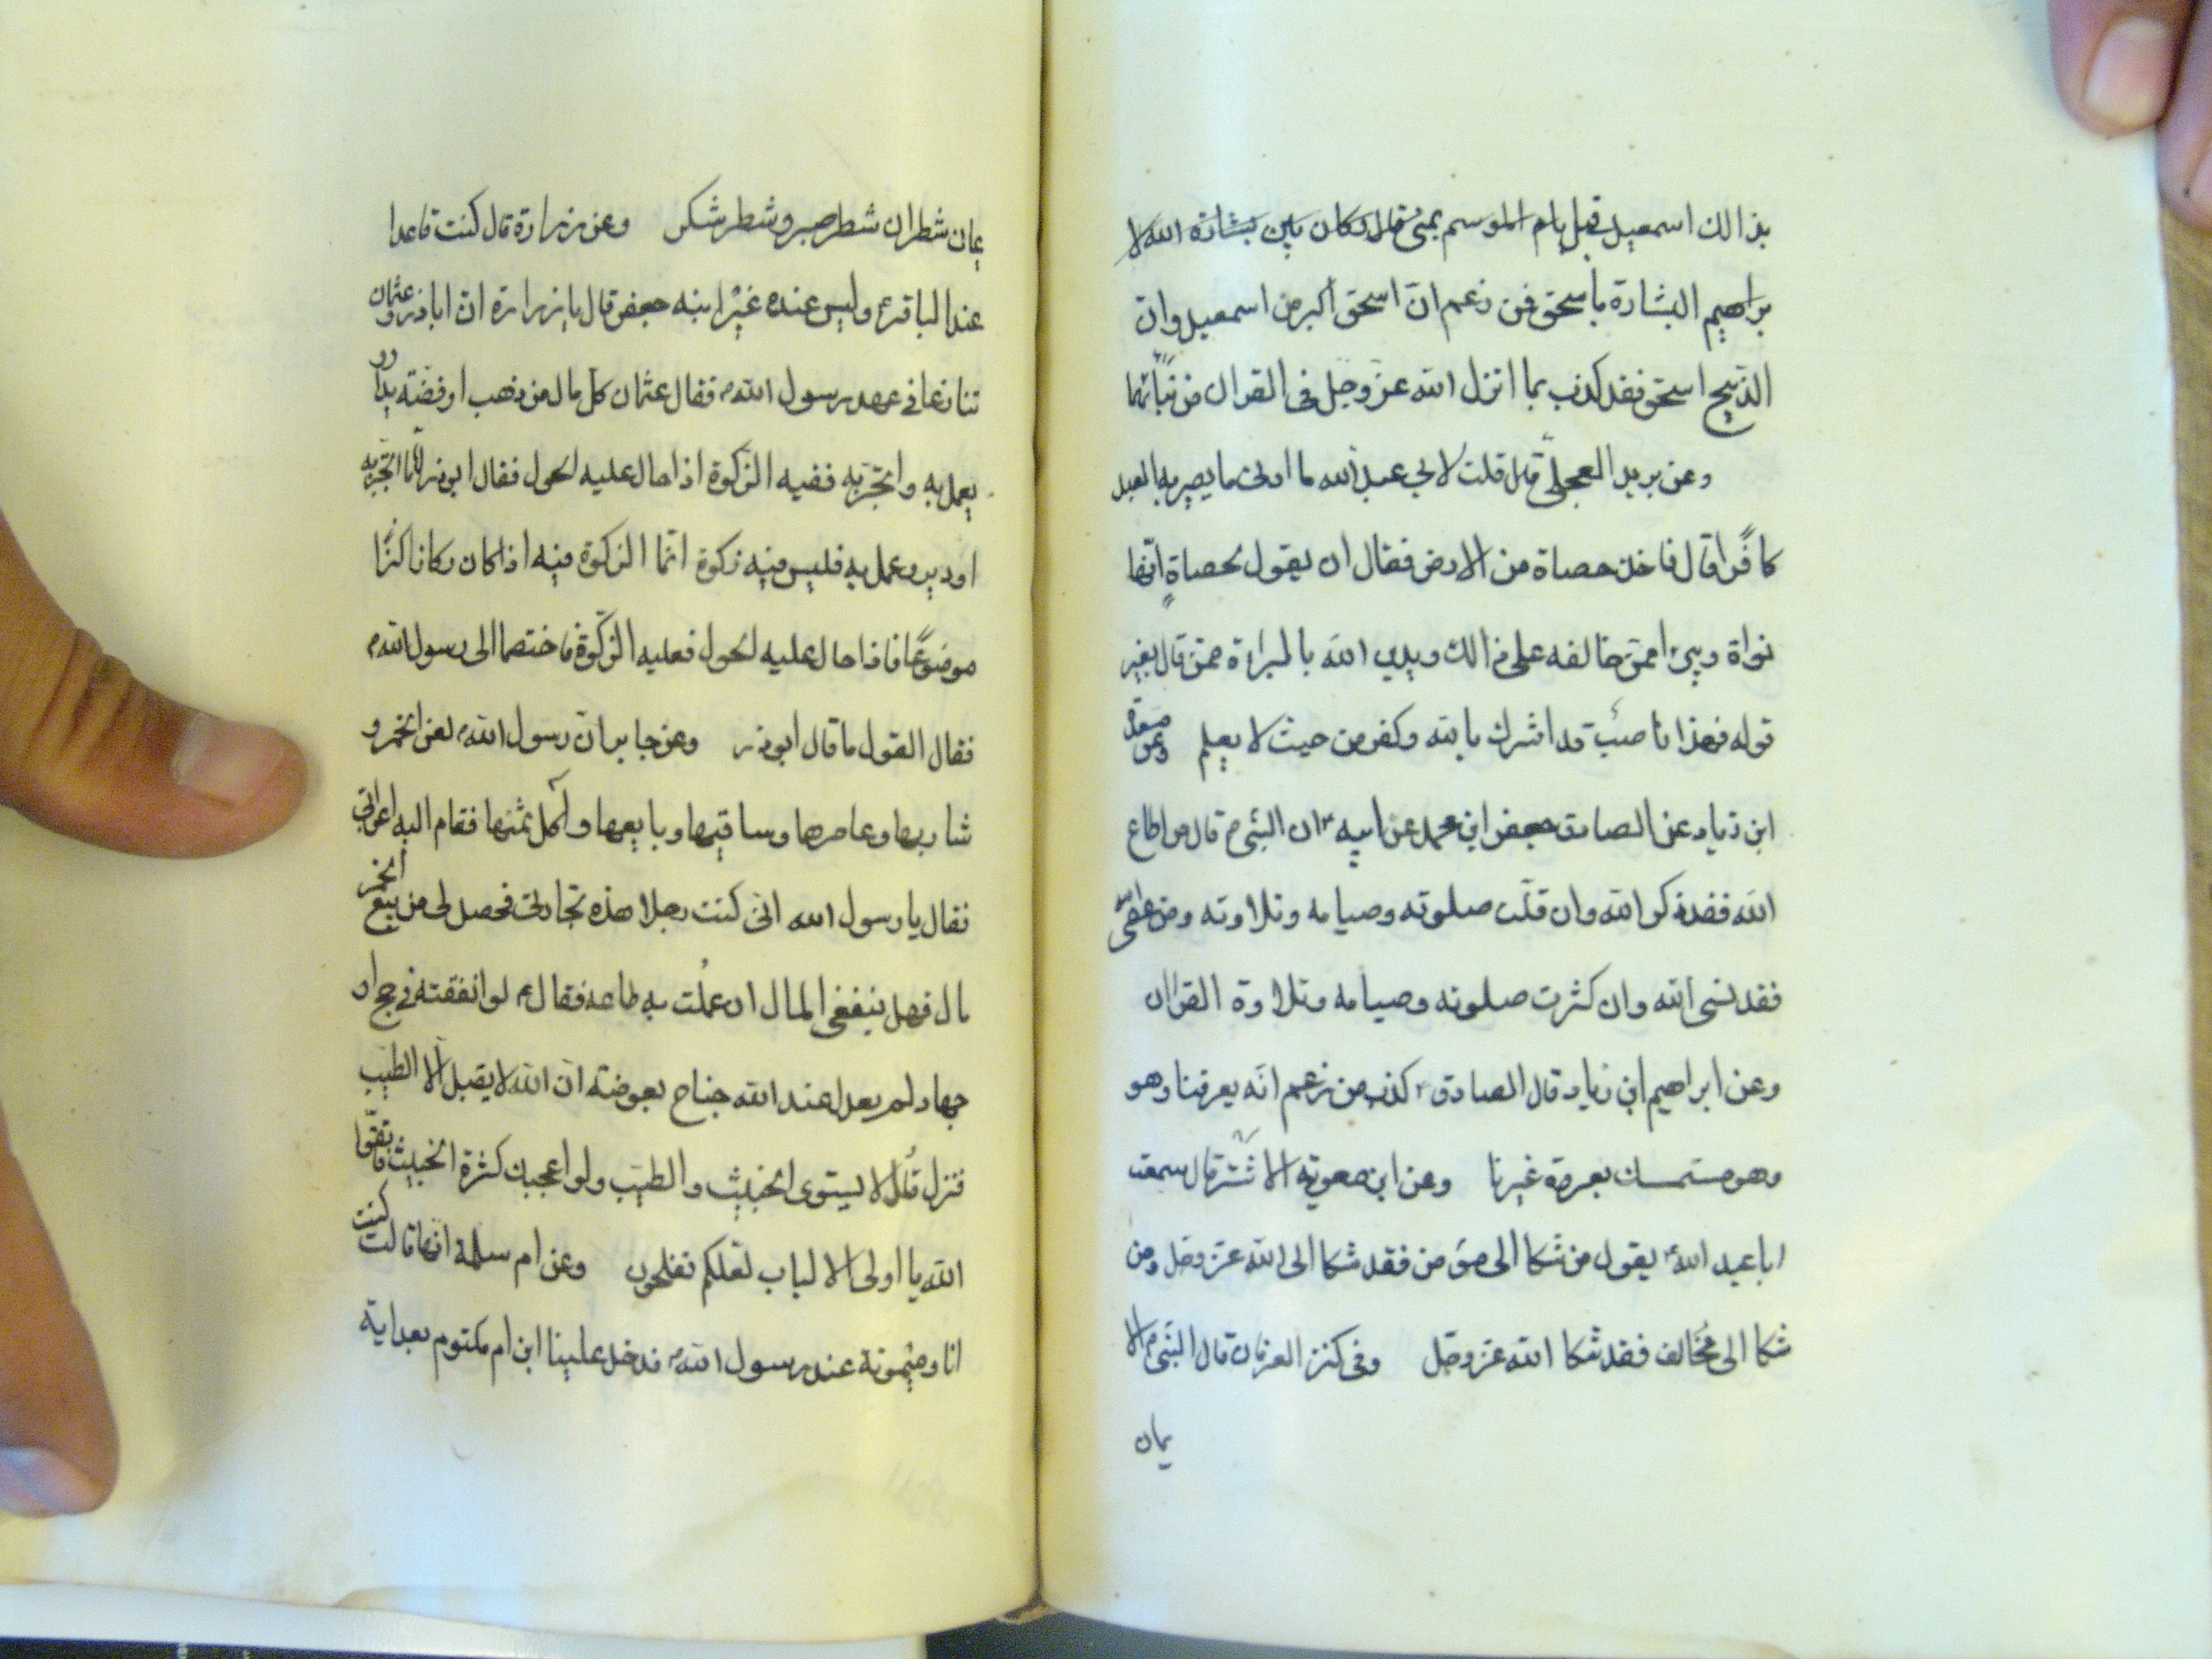 بذالك اسمعيل قبل يام الموسم بمنى قال وكان بين بشارة الله لا
براهيم البشارة باسحق فمن زعم انّ اسحق اكبر من اسمعيل وانّ
الذبيح اسحق فقد كذب بما انزل الله عزّ وجلّ فى القران من نبائهما
وعن بريد العجلىّ قال قلت لابي عبد الله ما ادنى ما يصير به العبد
كافرًا قال فاخذ حصاة من الارض فقال ان يقول لحصاةٍ انّها
نواة ويبرء ممّن خالفه على ذالك ويدين الله بالبراءة ممّن قال بغير
قوله فهذا ناصب قد اشرك بالله وكفر من حيث لا يعلم وعن
ابن زياد عن الصادق جعفر ابن محمد عن ابيه ان النبىّ م قال من اطاع
الله فقد ذكر الله وان قلّت صلوته وصيامه وتلاوته ومن عصى
فقد نسى الله وان كثرت صلوته وصيامه وتلاوة القران
وعن ابراهيم ابن زياد قال الصادق ع كذب من زعم انّه يعرفنا وهو
وهو مستمسك بعروة غيرنا وعن ابن معوية الاشتر قال سمعت
ابا عبد الله ع يقول من شكا الى مؤمن فقد شكا الى الله عزّ وجل ومن
شكا الى مخالف فقد شكا الله عزّ وجلّ وفى كنز العرفان قال النبىّ م الا
يمان
يمان شطران شطر صبر وشطر شكر وعن زرارة قال كنت قاعدا
عند الباقر ع وليس عنده غير ابنه جعفر قال يا زرارة انّ اباذر وعثمان
تنازعا فى عهد رسول الله م فقال عثمان كلّ مال من ذهب او فضّة يدار
يعمل به واتّجر به ففيه الزكوة اذا حال عليه الحول فقال ابوذر امّا اتّجر به
او دير وعمل به فليس فيه زكوة انّما الزكوة فيه اذا كان ركازا كنزًا
موضوعًا فاذا حال عليه الحول فعليه الزكوة فاختصما الى رسول الله م
فقال القول ما قال ابوذر وعن جابر انّ رسول الله م لعن الخمر و
شاربها وعاصرها وساقيها وبايعها واٰكل ثمنها فقام اليه اعرابى
فقال يا رسول الله انّى كنت رجلا هذه تجارتى فحصل لى من بيع الخمر
مال فهل ينفعنى المال ان عملت به طاعة فقال ع لو انفقته فى حج او
جهاد لم يعدل عند الله جناح بعوضة انّ الله لا يقبل الّا الطيّب
فنزل قل لا يستوى الخبيث والطيّب ولو اعجبك كثرة الخبيث فاتقوا
الله يا اولى الالباب لعلكم تفلحون وعن ام سلمة انّها قالت كنت
انا وميمونة عند رسول الله م فدخل علينا ابن ام مكتوم بعد اية